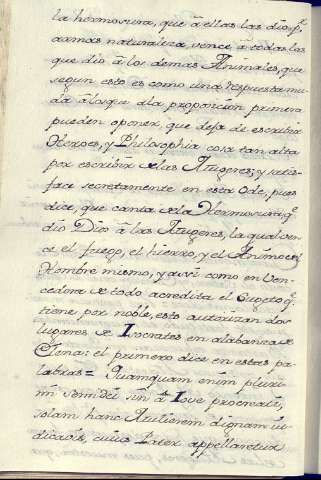 la hermosura, que â ellas las dió pr.
armas naturaleza vence â todas las
que dió â los demas Animales, que
segun esto es como una respuesta mu-
da â lo que â la proporcion primera
pueden oponer, que deja de escribir
Heroes, y Philosophia cosa tan alta
por escribir de las Mugeres; y satis-
face secretamente en esta Ode, pues
dice, que canta de la Hermosura, q.
dió Dios â las Mugeres, la qual ven-
ce el fuego, el hierro, y el Animo del
Hombre mismo, y assi como en Ven-
cedora de todo acredita el Sugeto q.
tiene, por noble, esto autorizan dos
lugares de Isocrates en alabanza de
Elena: el primero dice en estas pa-
labras = Quamquam enim pluri-
mi Semidei sin â Iove procreati,
solam hanc Mulierem dignam iu-
dicavit, cuius Pater appellaretur